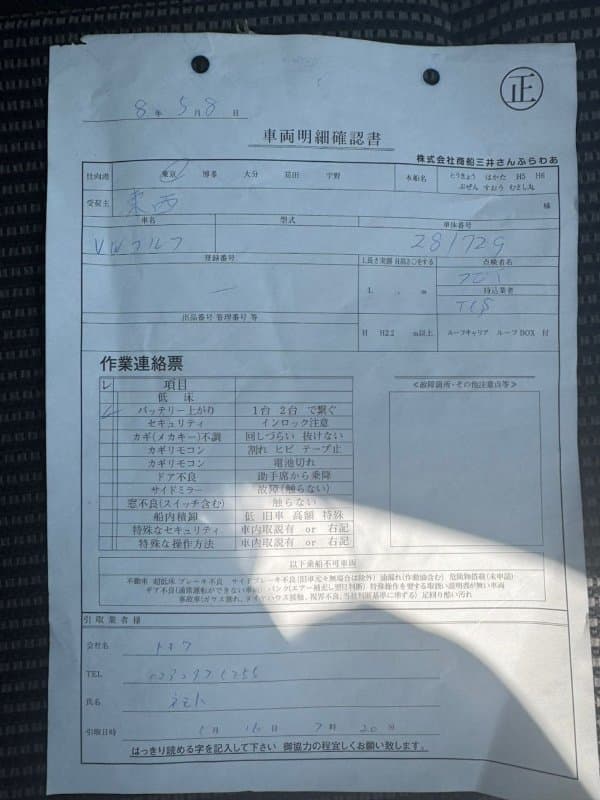 正
8年5月8日
車両明細確認書
株式会社商船三井さんふらわあ
仕向港 東京 博多 大分 苅田 宇野 本船名 とうきょう はかた H5 H6
ぶぜん すおう むさし丸
受荷主 東西 様
車名 型式 車体番号
VWゴルフ 281729
登録番号 L長さ実測 H高さ○をする 点検者名
L . m 持込業者
出品番号 管理番号 等
H H2.2 m以上 ルーフキャリア ルーフBOX 付
作業連絡票
レ 項目 <故障箇所・その他注意点等>
低 床
レ バッテリー上がり 1台 2台 で繋ぐ
セキュリティ インロック注意
カギ(メカキー)不調 回しづらい 抜けない
カギリモコン 割れ ヒビ テープ止
カギリモコン 電池切れ
ドア不良 助手席から乗降
サイドミラー 故障(触らない)
窓不良(スイッチ含む) 触らない
船内積卸 低 旧車 高額 特殊
特殊なセキュリティ 車内取説有 or 右記
特殊な操作方法 車内取説有 or 右記
以下乗船不可車両
不動車 超低床 ブレーキ不良 サイドブレーキ不良(旧車元々無場合は除外) 油漏れ(作動油含む) 危険物搭載(未申請)
ギア不良(通常運転ができない車両) パンク(エアー補充し翌日判断) 特殊操作を要する取扱い説明書が無い車両
引取業者様
会社名
TEL
氏名
引取日時 5月16日 7時20分
はっきり読める字を記入して下さい 御協力の程宜しくお願い致します。